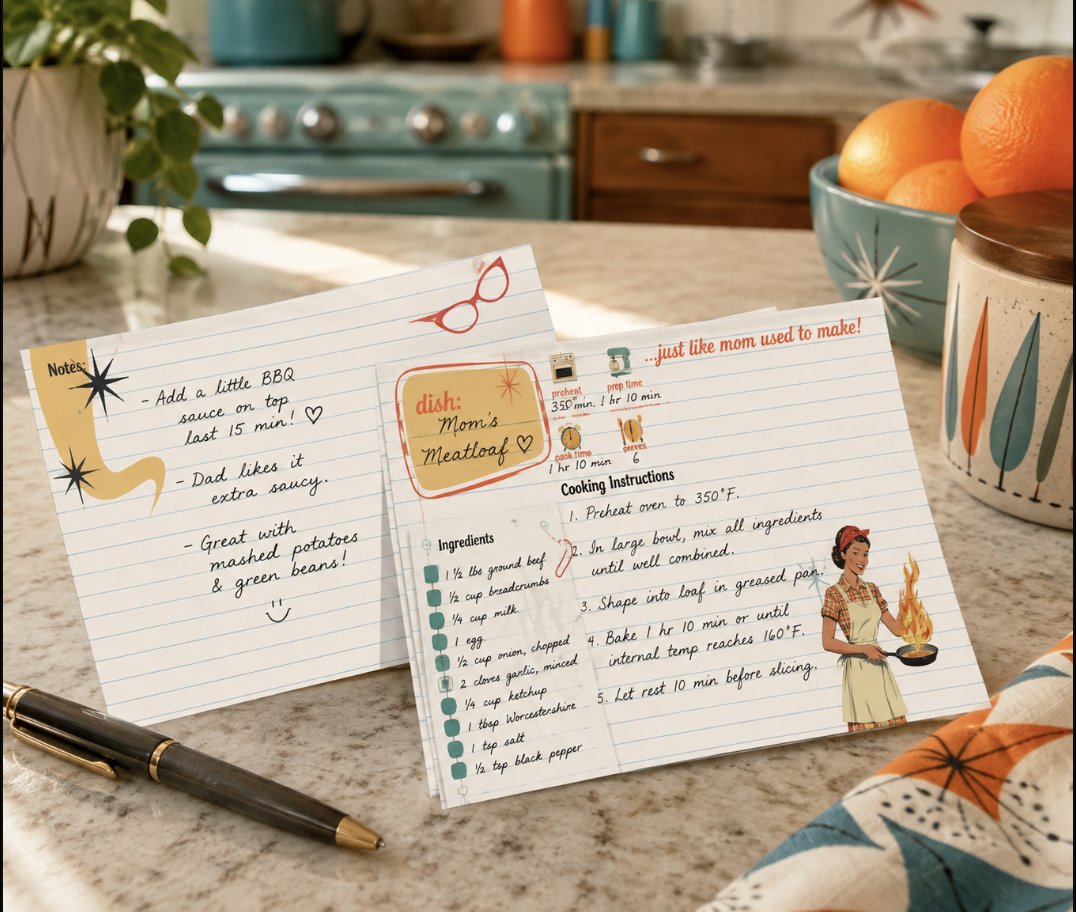 Notes:
- Add a little BBQ
sauce on top
last 15 min! ♡
- Dad likes it
extra saucy.
- Great with
mashed potatoes
& green beans!
...just like mom used to make!
dish:
Mom's
Meatloaf ♡
preheat
350°
prep time
1 hr 10 min
cook time
1 hr 10 min
serves
6
Ingredients
1 ½ lbs ground beef
½ cup breadcrumbs
¼ cup milk
1 egg
½ cup onion, chopped
2 cloves garlic, minced
¼ cup ketchup
1 tbsp Worcestershire
1 tsp salt
½ tsp black pepper
Cooking Instructions
1. Preheat oven to 350°F.
2. In large bowl, mix all ingredients
until well combined.
3. Shape into loaf in greased pan.
4. Bake 1 hr 10 min or until
internal temp reaches 160°F.
5. Let rest 10 min before slicing.